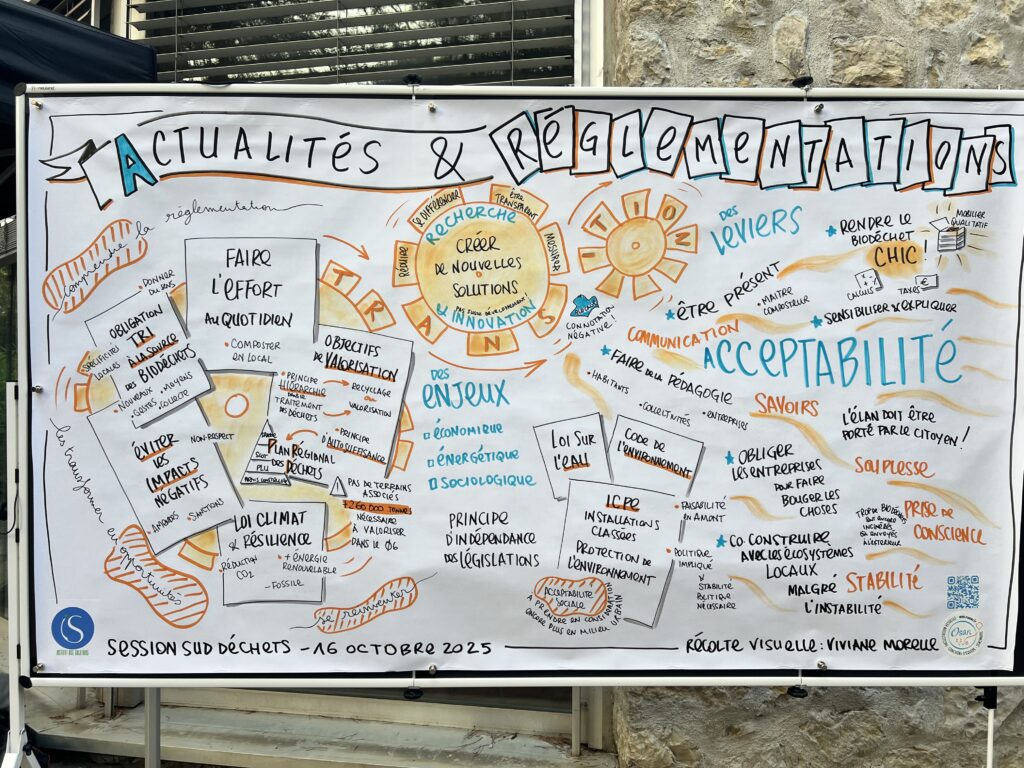 ACTUALITÉS & RÉGLEMENTATIONS
Comprendre la réglementation
les transformer en opportunités
se réinventer
FAIRE
L'EFFORT
AU QUOTIDIEN
• COMPOSTER
EN LOCAL
• DONNER
DU SENS
OBLIGATION
TRI
À LA SOURCE
DES BIODÉCHETS
SPÉCIFICITÉS
LOCALES
• NOUVEAUX
GESTES
• MOYENS
• COLLECTE
ÉVITER
LES
IMPACTS
NÉGATIFS
NON-RESPECT
• AMENDES
• SANCTIONS
LOI CLIMAT
& RÉSILIENCE
• RÉDUCTION
CO2
• + ÉNERGIE
RENOUVELABLE
- FOSSILE
OBJECTIFS
DE VALORISATION
• PRINCIPE
HIÉRARCHIE
DANS LE
TRAITEMENT
DES DÉCHETS
RECYCLAGE
OU
VALORISATION
• PRINCIPE
D'AUTOSUFFISANCE
PLAN RÉGIONAL
DES DÉCHETS
SCOT
PLU
PAS DE TERRAINS
ASSOCIÉS
+260 000 TONNES
NÉCESSAIRE
À VALORISER
DANS LE 06
TRANSITION
SE DIFFÉRENCIER
ÊTRE
TRANSPARENT
RÉDUIRE
MESURER
RECHERCHE
CRÉER
DE NOUVELLES
SOLUTIONS !
& INNOVATIONS
CONNOTATION
NÉGATIVE !
DES
ENJEUX
ÉCONOMIQUE
ÉNERGÉTIQUE
SOCIOLOGIQUE
PRINCIPE
D'INDÉPENDANCE
DES LÉGISLATIONS
LOI SUR
L'EAU
CODE DE
L'ENVIRONNEMENT
ICPE
INSTALLATIONS
CLASSÉES
PROTECTION DE
L'ENVIRONNEMENT
ACCEPTABILITÉ
SOCIALE
À PRENDRE EN CONSIDÉRATION
ENCORE PLUS EN MILIEU URBAIN
DES
LEVIERS
RENDRE LE
BIODÉCHET
CHIC !
MOBILIER
QUALITATIF
ÊTRE PRÉSENT
• MAITRE
COMPOSTEUR
CALCULS
TAXES
SENSIBILISER & EXPLIQUER
COMMUNICATION
ACCEPTABILITÉ
FAIRE DE LA PÉDAGOGIE
• HABITANTS
• COLLECTIVITÉS
• ENTREPRISES
SAVOIRS
L'ÉLAN DOIT ÊTRE
PORTÉ PAR LE CITOYEN !
OBLIGER
LES ENTREPRISES
POUR FAIRE
BOUGER LES
CHOSES
SOUPLESSE
• FAISABILITÉ
EN AMONT
TROP DE BIODÉCHETS
SONT ENCORE
INCINÉRÉS
OU ENVOYÉS
À L'EXTÉRIEUR
PRISE DE
CONSCIENCE
CO CONSTRUIRE
AVEC LES ÉCOSYSTÈMES
LOCAUX
• POLITIQUE
IMPLIQUÉ
&
STABILITÉ
POLITIQUE
NÉCESSAIRE
MALGRÉ
L'INSTABILITÉ
STABILITÉ
SESSION SUD DÉCHETS - 16 OCTOBRE 2025
RÉCOLTE VISUELLE : VIVIANE MORELLE